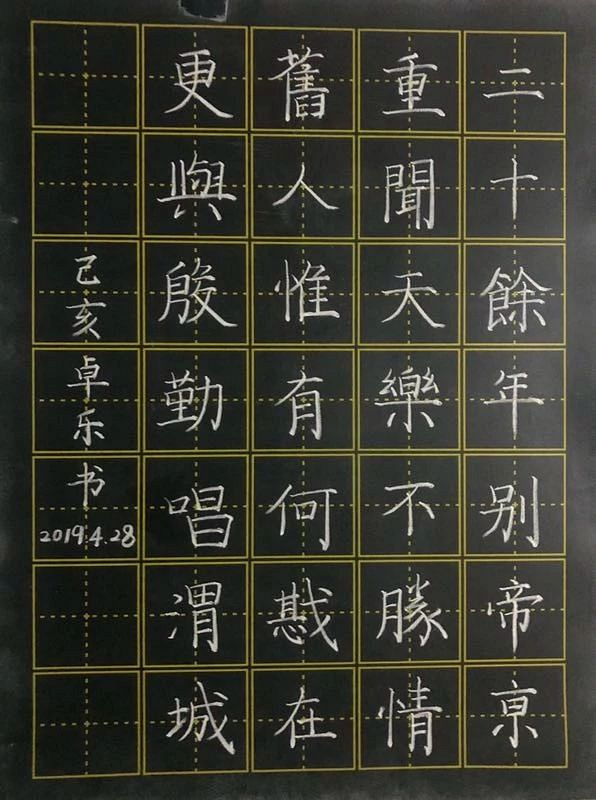 二十餘年别帝京
重聞天樂不勝情
舊人惟有何戡在
更與殷勤唱渭城
己亥卓乐书
2019.4.28